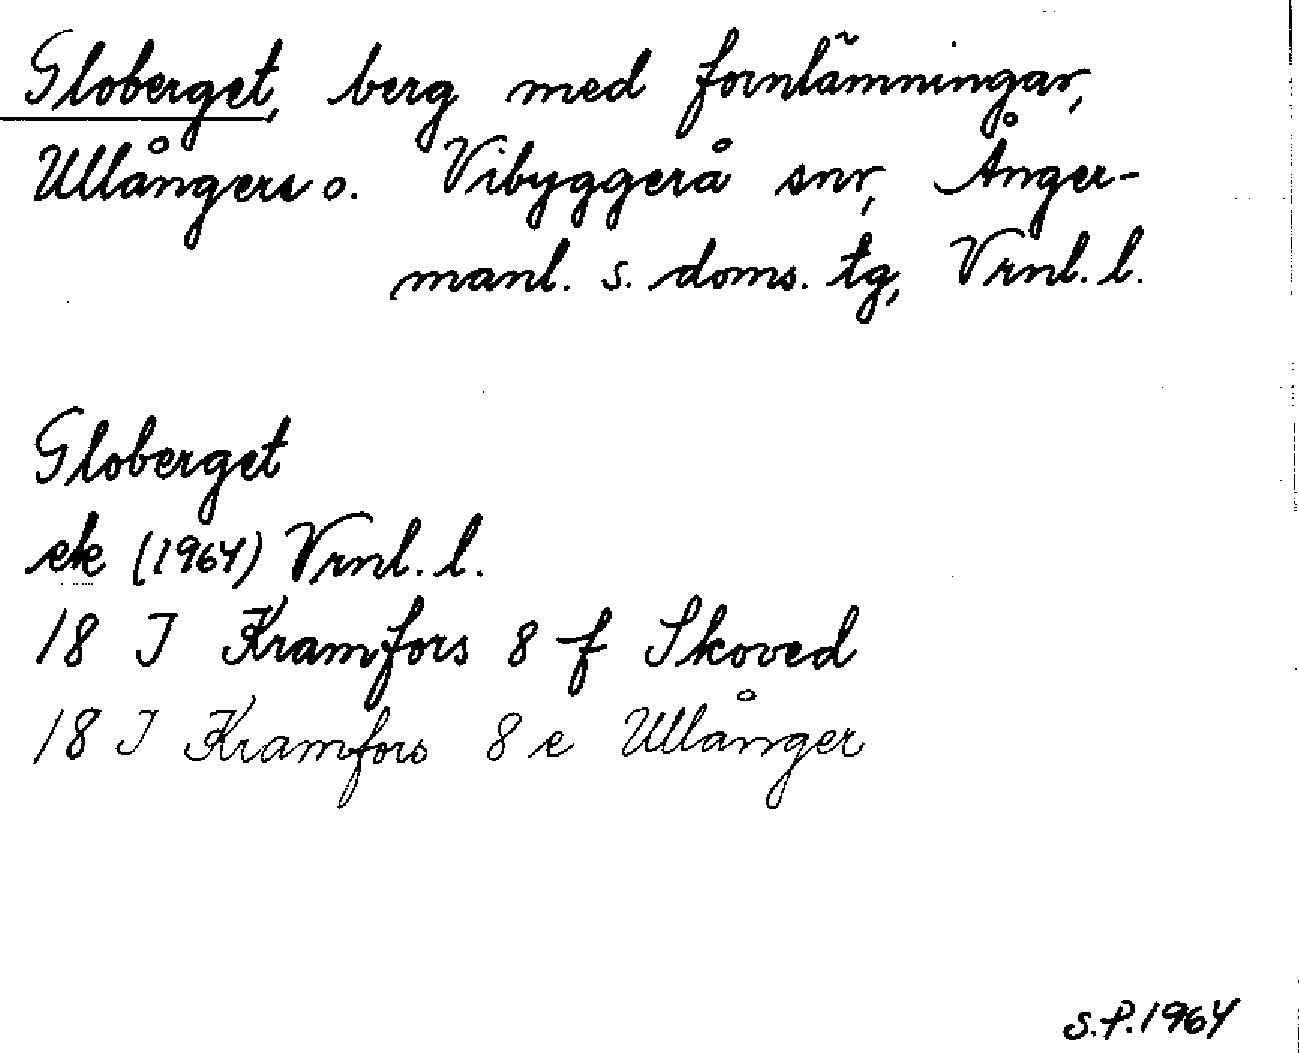 Globerget, berg med fornlämningar,
Ullångers o. Vibyggerå snr, Ånger-
manl. s. doms. tg, Vrnl. l.
Globerget
ek (1964) Vrnl. l.
18 I Kramfors 8 f Skoved
18 I Kramfors 8 e Ullånger
S.P. 1964